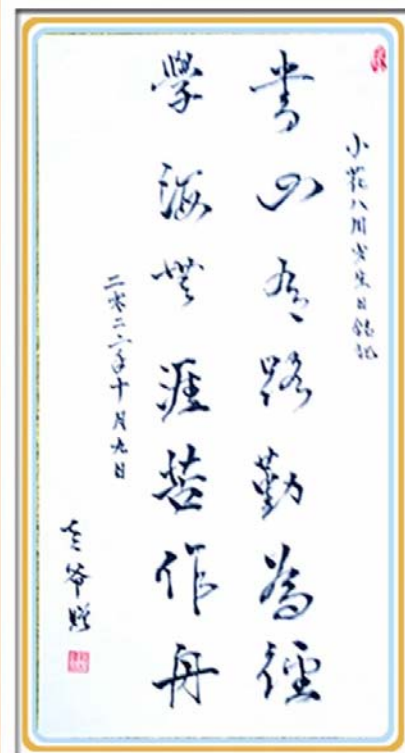 小花八周岁生日铭記
書山有路勤為徑
學海無涯苦作舟
二零二二年十月九日
老爷贈